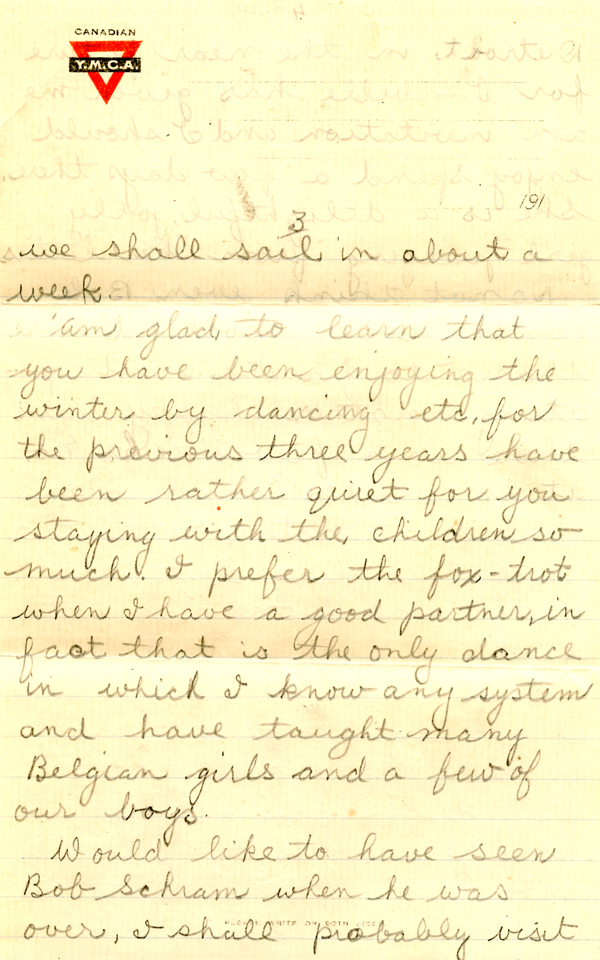 CANADIAN
Y.M.C.A.
191
3
we shall sail in about a
week.
'am glad to learn that
you have been enjoying the
winter by dancing etc, for
the previous three years have
been rather quiet for you
staying with the children so
much. I prefer the fox-trot
when I have a good partner, in
fact that is the only dance
in which I know any system
and have taught many
Belgian girls and a few of
our boys.
Would like to have seen
Bob Schram when he was
PLEASE WRITE ON BOTH SIDES
over, I shall probably visit